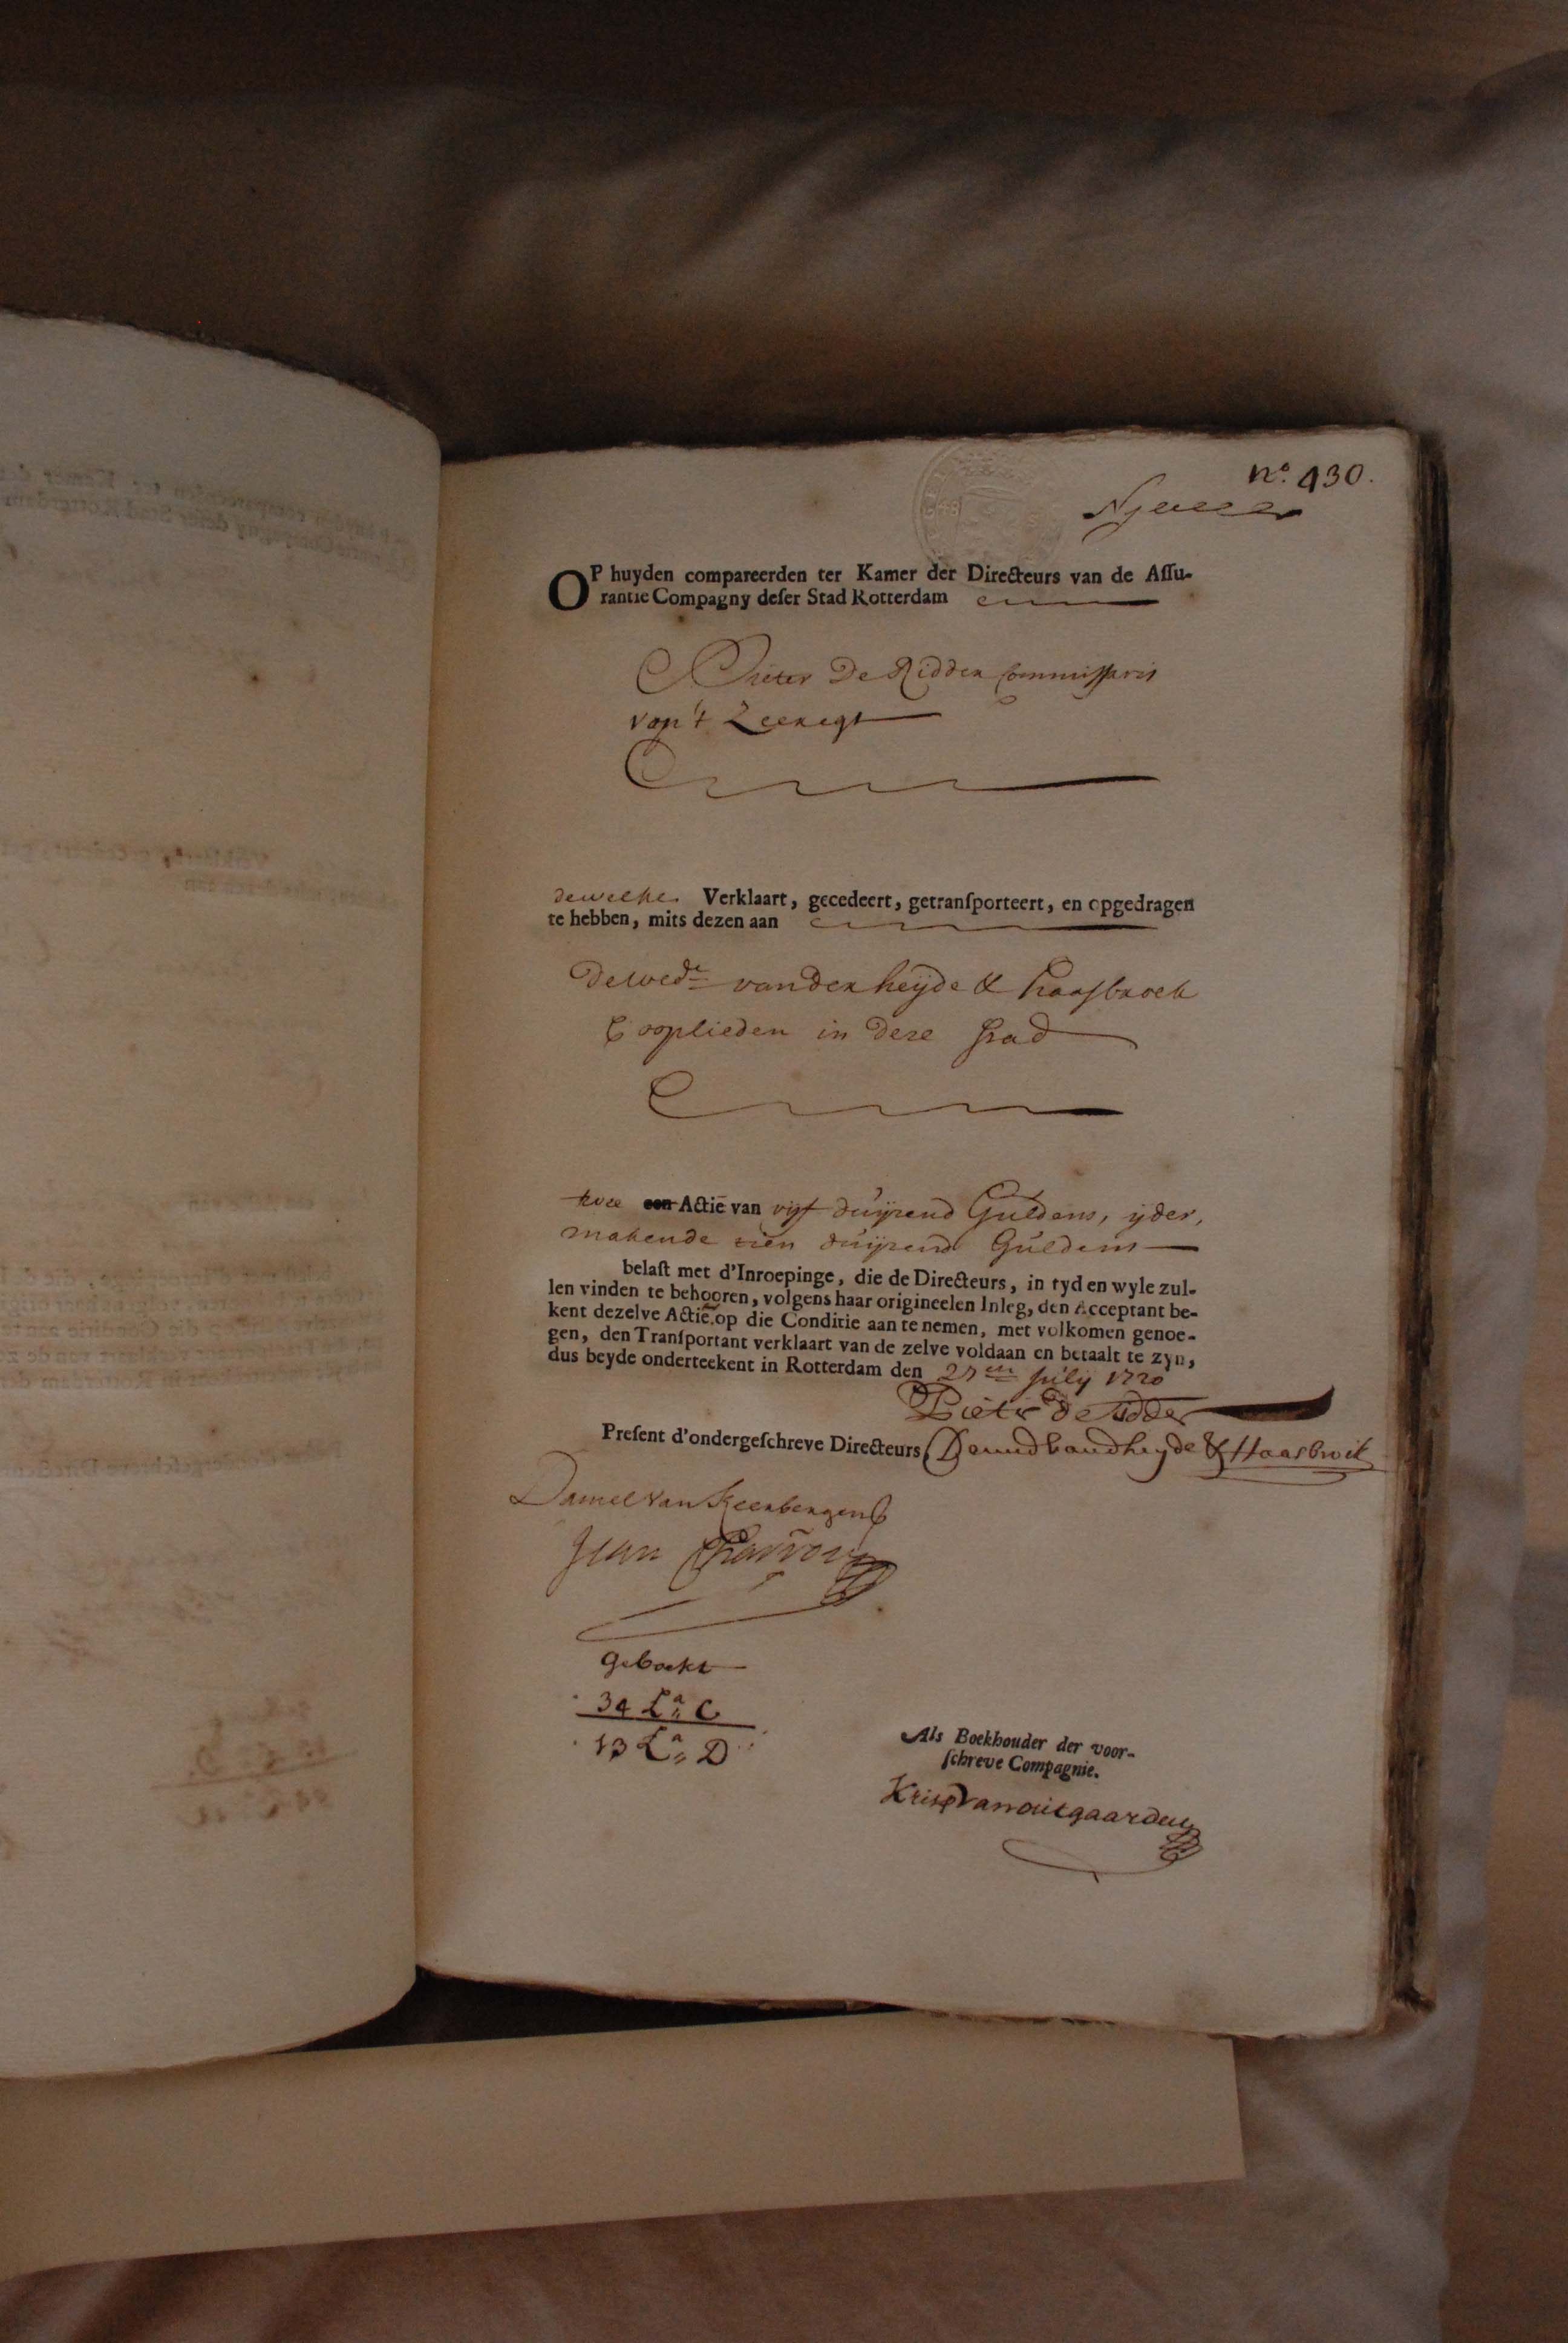 nº. 430.
OP huyden compareerden ter Kamer der Directeurs van de Aſſu-
rantie Compagny deſer Stad Rotterdam
Pieter De Ridder Commissaris
van't Zeeregt
dewelke Verklaart, gecedeert, getranſporteert, en opgedragen
te hebben, mits dezen aan
De wedᵉ vander heijde & haasbroek
Cooplieden in deze Stad
twee een Actiē van vijf duijzend Guldens, ijder,
makende tien duijzend Guldens
belaſt met d'Inroepinge, die de Directeurs, in tyd en wyle zul-
len vinden te behooren, volgens haar origineelen Inleg, den Acceptant be-
kent dezelve Actiē op die Conditie aan te nemen, met volkomen genoe-
gen, den Tranſportant verklaart van de zelve voldaan en betaalt te zyn,
dus beyde onderteekent in Rotterdam den 27en Julij 1720
Pieter De Ridder
Preſent d'ondergeſchreve Directeurs De wed van d heyde & Haasbroek
Daniel Van Keerbergen
Jean Charron
Geboekt
34 Lª C
13 Lª D
Als Boekhouder der voor-
ſchreve Compagnie.
Krisp Van outgaarden